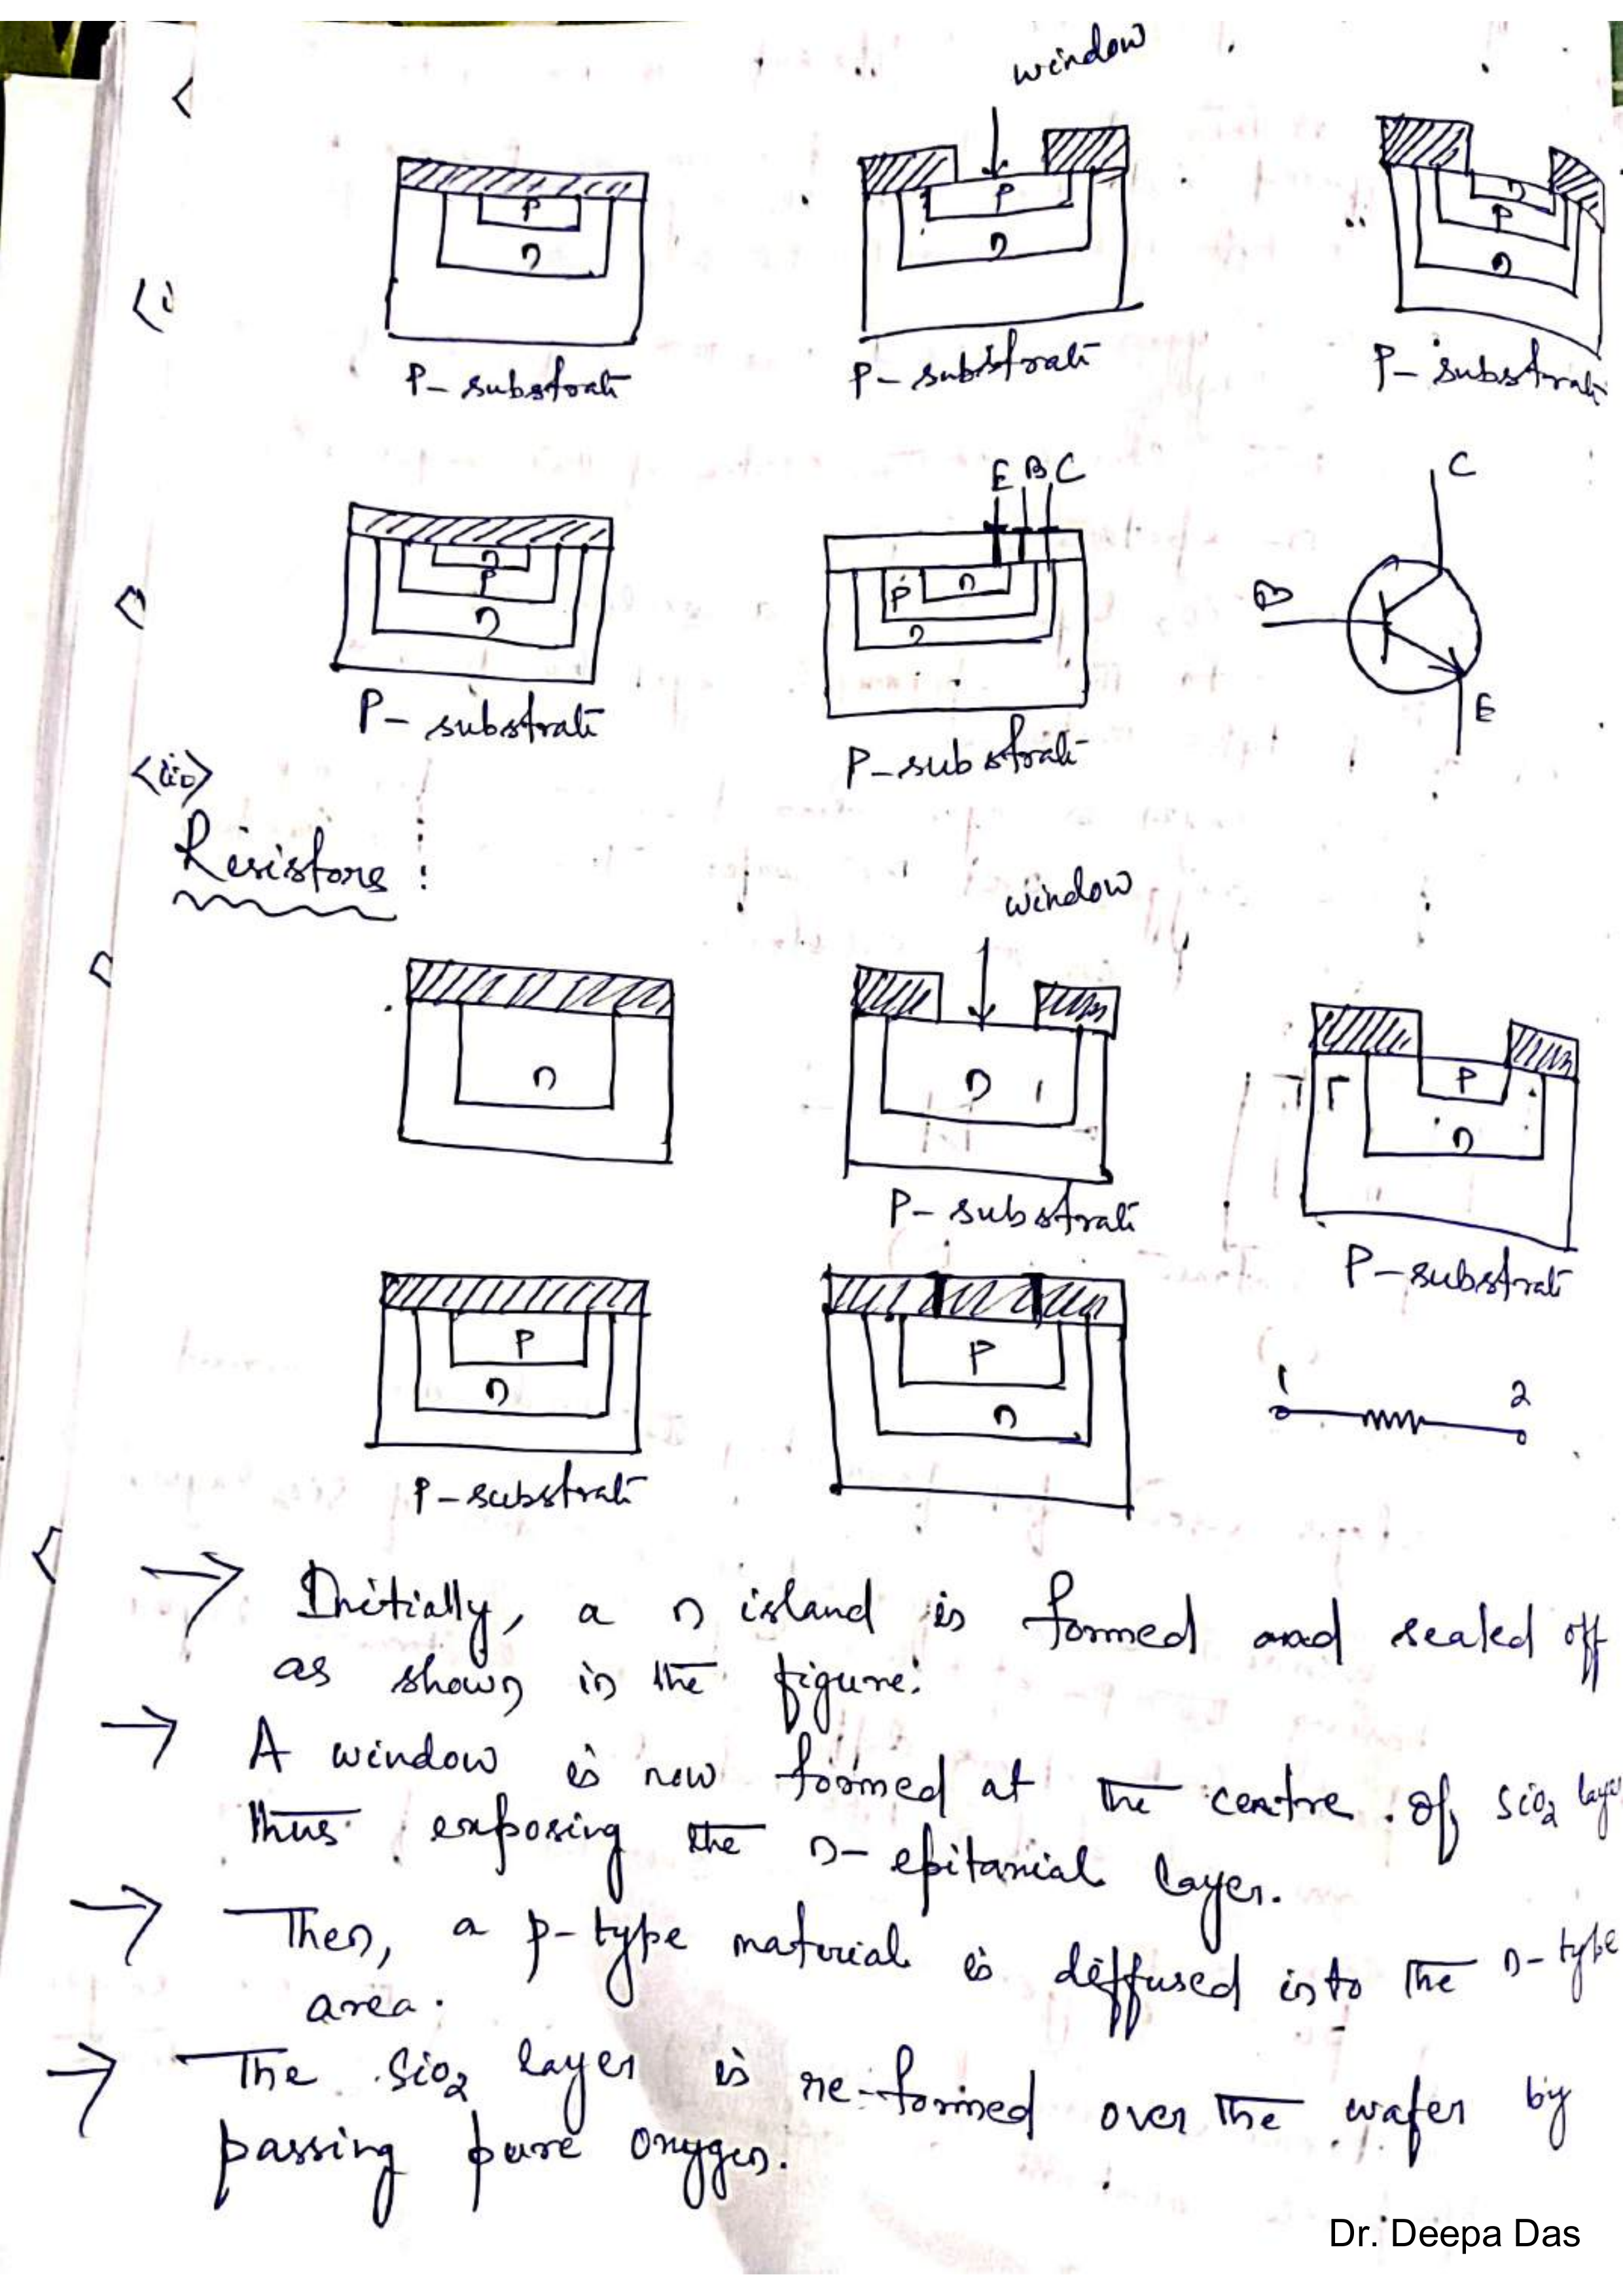 window
P
n
P
n
n
P
n
P-substrate
P-substrate
P-substrate
E B C
C
n
P
n
P n
n
B
E
P-substrate
P-substrate
<iii>
Resistors :
window
n
n
P
n
P-substrate
P-substrate
P
n
P
n
1 2
P-substrate
→ Initially, a n island is formed and sealed off
as shown in the figure.
→ A window is now formed at the centre of SiO2 layer
thus exposing the n-epitaxial layer.
→ Then, a p-type material is diffused into the n-type
area.
→ The SiO2 layer is re-formed over the wafer by
passing pure oxygen.
Dr. Deepa Das